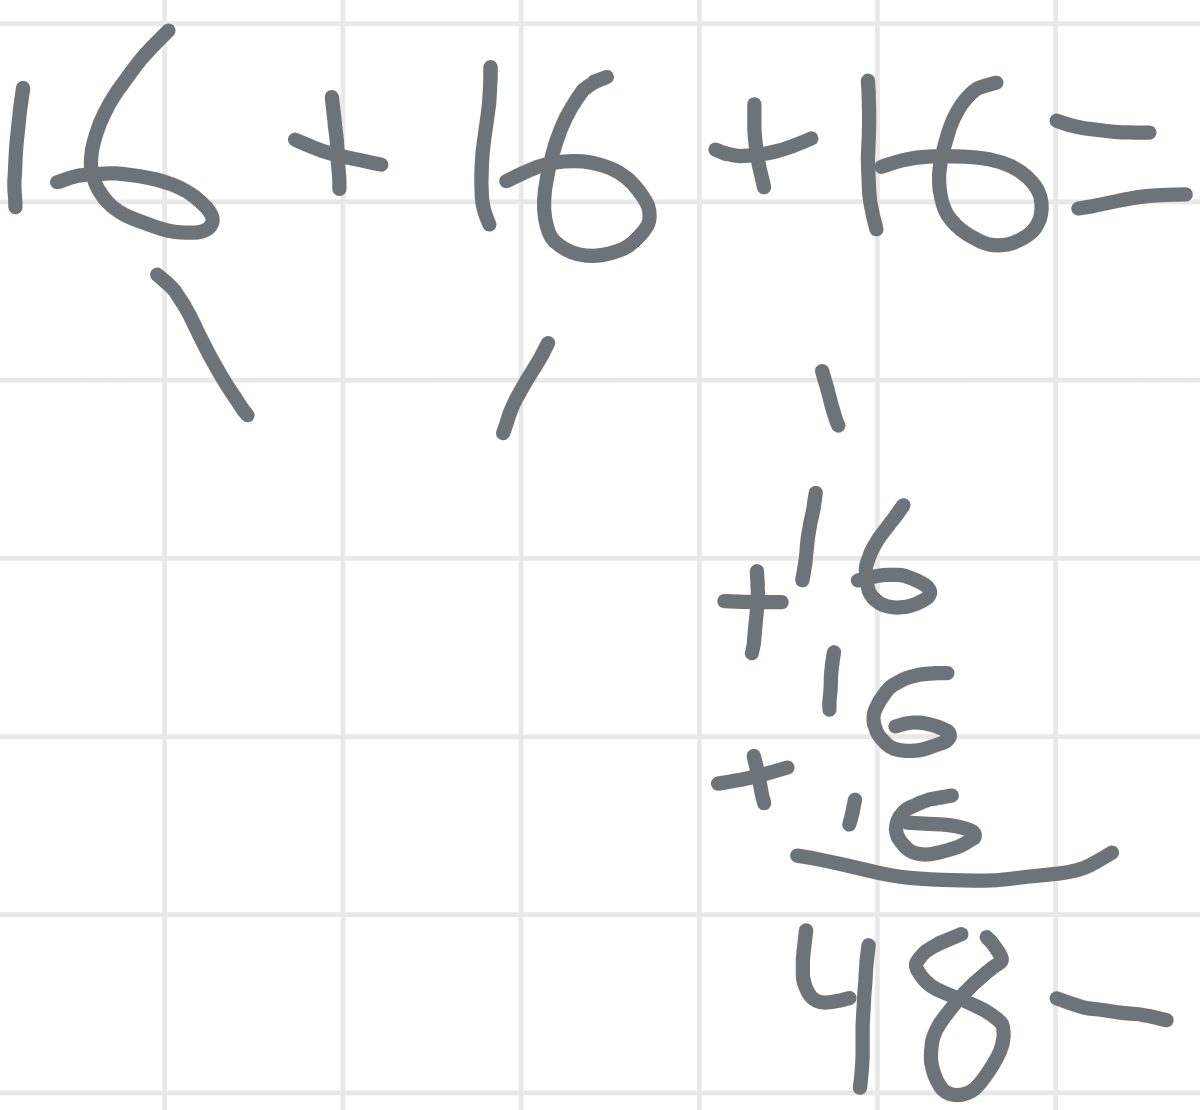 16 + 16 + 16 =
16
+
16
+
16
48 -